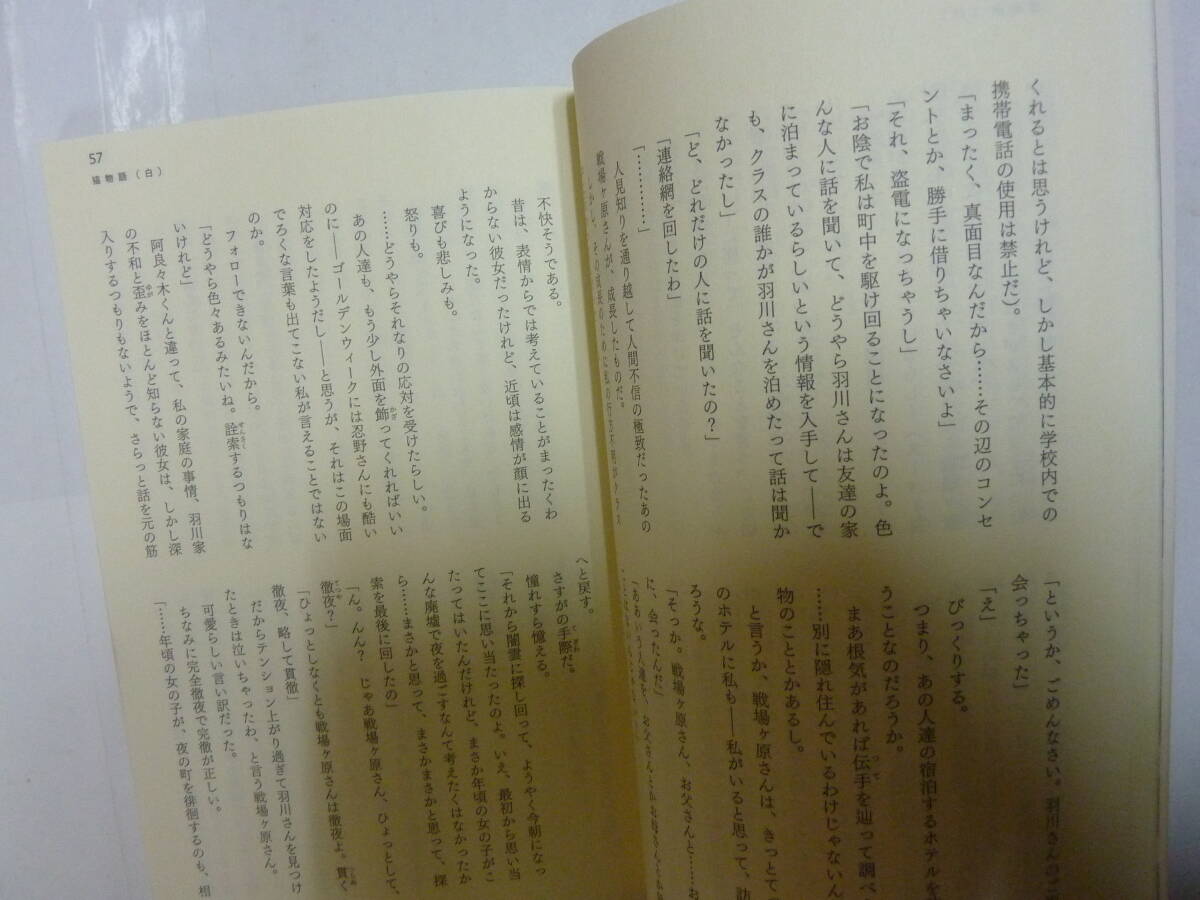 くれるとは思うけれど、しかし基本的に学校内での
携帯電話の使用は禁止だ）。
「まったく、真面目なんだから……その辺のコンセ
ントとか、勝手に借りちゃいなさいよ」
「それ、盗電になっちゃうし」
「お陰で私は町中を駆け回ることになったのよ。色
んな人に話を聞いて、どうやら羽川さんは友達の家
に泊まっているらしいという情報を入手して――で
も、クラスの誰かが羽川さんを泊めたって話は聞か
なかったし」
「ど、どれだけの人に話を聞いたの？」
「連絡網を回したわ」
「…………」
人見知りを通り越して人間不信の極致だったあの
戦場ヶ原さんが、成長したものだ。
しかし、その成長のために私の行方不明がクラス
「というか、ごめんなさい。羽川さんのご
会っちゃった」
「え」
びっくりする。
つまり、あの人達の宿泊するホテルを
うことなのだろうか。
まあ根気があれば伝手を辿って調べ
つて
……別に隠れ住んでいるわけじゃないん
物のこととかあるし。
と言うか、戦場ヶ原さんは、きっとて
のホテルに私も――私がいると思って、訪
ろうな。
「そっか。戦場ヶ原さん、お父さんと……お
に、会ったんだ」
「ああいう人達を、お父さんとかお母さんとか
57
猫物語（白）
不快そうである。
昔は、表情からでは考えていることがまったくわ
からない彼女だったけれど、近頃は感情が顔に出る
ようになった。
喜びも悲しみも。
怒りも。
……どうやらそれなりの応対を受けたらしい。
あの人達も、もう少し外面を飾ってくれればいい
かざ
のに――ゴールデンウィークには忍野さんにも酷い
対応をしたようだし――と思うが、それはこの場面
でろくな言葉も出てこない私が言えることではない
のか。
フォローできないんだから。
「どうやら色々あるみたいね。詮索するつもりはな
せんさく
いけれど」
阿良々木くんと違って、私の家庭の事情、羽川家
の不和と歪みをほとんど知らない彼女は、しかし深
ゆが
入りするつもりもないようで、さらっと話を元の筋
へと戻す。
さすがの手際だ。
てぎわ
憧れすら憶える。
「それから闇雲に探し回って、ようやく今朝になっ
てここに思い当たったのよ。いえ、最初から思い当
たってはいたんだけれど、まさか年頃の女の子がこ
んな廃墟で夜を過ごすなんて考えたくはなかったか
ら……まさかと思って、まさかまさかと思って、探
索を最後に回したの」
「ん。んん？　じゃあ戦場ヶ原さん、ひょっとして、
徹夜？」
てつや
「ひょっとしなくとも戦場ヶ原さんは徹夜よ。貫く
徹夜、略して貫徹」
だからテンション上がり過ぎて羽川さんを見つけ
たときは泣いちゃったわ、と言う戦場ヶ原さん。
可愛らしい言い訳だった。
ちなみに完全徹夜で完徹が正しい。
「……年頃の女の子が、夜の町を徘徊するのも、相